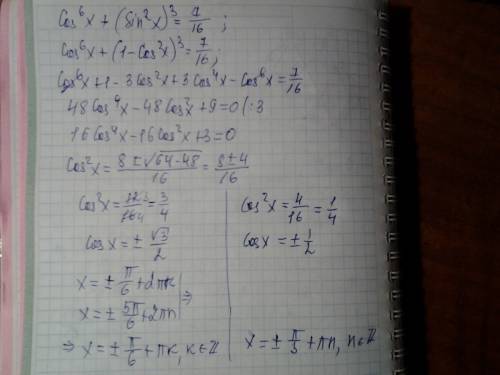 Cos⁶x + (Sin²x)³ = 7/16 ;
Cos⁶x + (1 - Cos²x)³ = 7/16 ;
Cos⁶x + 1 - 3Cos²x + 3Cos⁴x - Cos⁶x = 7/16
48Cos⁴x - 48Cos²x + 9 = 0 (:3
16Cos⁴x - 16Cos²x + 3 = 0
Cos²x = (8 ± √(64-48))/16 = (8 ± 4)/16
Cos²x = 12/16 = 3/4
Cosx = ± √3/2
x = ± π/6 + 2πk
x = ± 5π/6 + 2πn | ⇒
⇒ x = ± π/6 + πk, k ∈ Z
Cos²x = 4/16 = 1/4
Cosx = ± 1/2
x = ± π/3 + πn, n ∈ Z